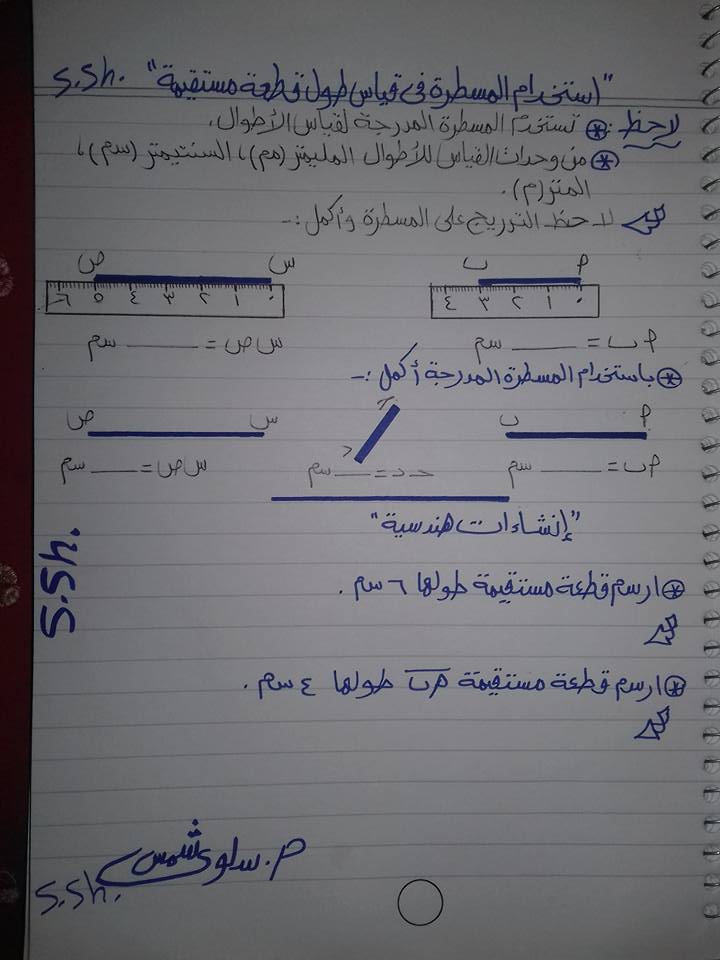 "استخدام المسطرة فى قياس طول قطعة مستقيمة" S.Sh.
لاحظ :- * تستخدم المسطرة المدرجة لقياس الأطوال.
* من وحدات القياس للأطوال المليمتر (مم)، السنتيمتر (سم)،
المتر (م).
لاحظ التدريج على المسطرة وأكمل :-
م ب
٠ ١ ٢ ٣ ٤
س ص
٠ ١ ٢ ٣ ٤ ٥ ٦
م ب = ____ سم
س ص = ____ سم
* باستخدام المسطرة المدرجة أكمل :-
م ب
ح د
س ص
م ب = ____ سم
ح د = ____ سم
س ص = ____ سم
"إنشاءات هندسية"
S.Sh.
* ارسم قطعة مستقيمة طولها ٦ سم .
* ارسم قطعة مستقيمة م ب طولها ٤ سم .
م. سلوى شمس
S.Sh.